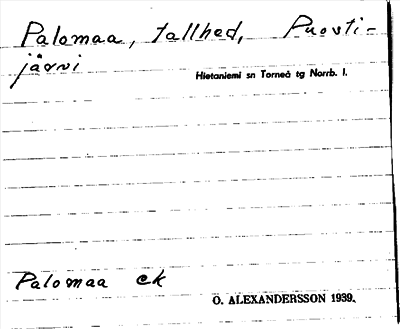 Palomaa, tallhed, Puosti-
järvi
Hietaniemi sn Torneå tg Norrb. l.
Palomaa ek
O. ALEXANDERSSON 1939.